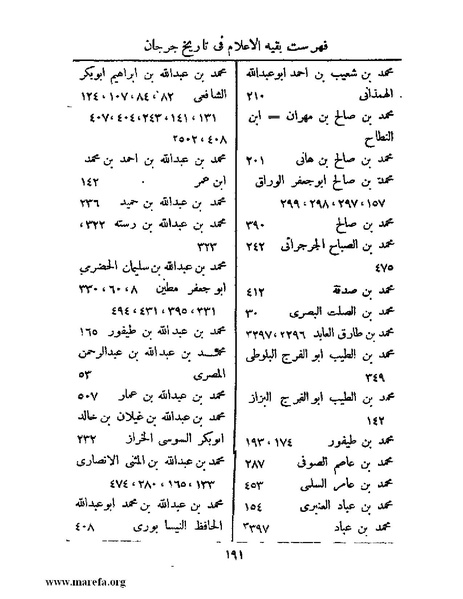 فهرست بقيه الاعلام فى تاريخ جرجان
محمد بن شعيب بن احمد ابوعبدالله
الهمذانى ٢١٠
محمد بن صالح بن مهران = ابن
النطاح
محمد بن صالح بن هانى ٢٠١
محمد بن صالح ابوجعفر الوراق
١٥٧، ٢٩٧، ٢٩٨، ٢٩٩
محمد بن صالح ٣٩٠
محمد بن الصباح الجرجرائى ٢٤٢
٤٧٥
محمد بن صدقة ٤١٢
محمد بن الصلت البصرى ٣٠
محمد بن طارق العابد ٢٢٩٦، ٣٣٩٧
محمد بن الطيب ابو الفرج البلوطى
٣٤٩
محمد بن الطيب ابوالفرج البزاز
١٤٢
محمد بن طيفور ١٧٤، ١٩٣
محمد بن عاصم الصوفى ٢٨٧
محمد بن عامر السلمى ٤٥٣
محمد بن عباد العنبرى ١٥٤
محمد بن عباد ٣٣٩٧
محمد بن عبدالله بن ابراهيم ابوبكر
الشافعى ٨٢، ٨٤، ١٠٧، ١٢٤
١٣١، ١٤١، ٢٤٣، ٤٠٤، ٤٠٧
٤٠٨، ٢٥٠٢
محمد بن عبدالله بن احمد بن محمد
ابن عمر ١٤٢
محمد بن عبدالله بن حميد ٢٣٦
محمد بن عبدالله بن رسته ٣٢٢،
٣٢٣
محمد بن عبدالله بن سليمان الحضرى
ابو جعفر مطين ٨، ٦٠، ٣٣٠
٣٣١، ٣٩٥، ٤٣١، ٤٩٤
محمد بن عبدالله بن طيفور ١٦٥
محمد بن عبدالله بن عبدالرحمن
المصرى ٥٣
محمد بن عبدالله بن عمار ٥٠٧
محمد بن عبدالله بن غيلان بن خالد
ابوبكر السوسى الخراز ٢٣٢
محمد بن عبدالله بن المثنى الانصارى
١٣٣، ١٦٥، ٢٨٠، ٤٧٤
محمد بن عبدالله بن محمد ابوعبدالله
الحافظ النيسا بورى ٤٠٨
١٩١
www.marefa.org